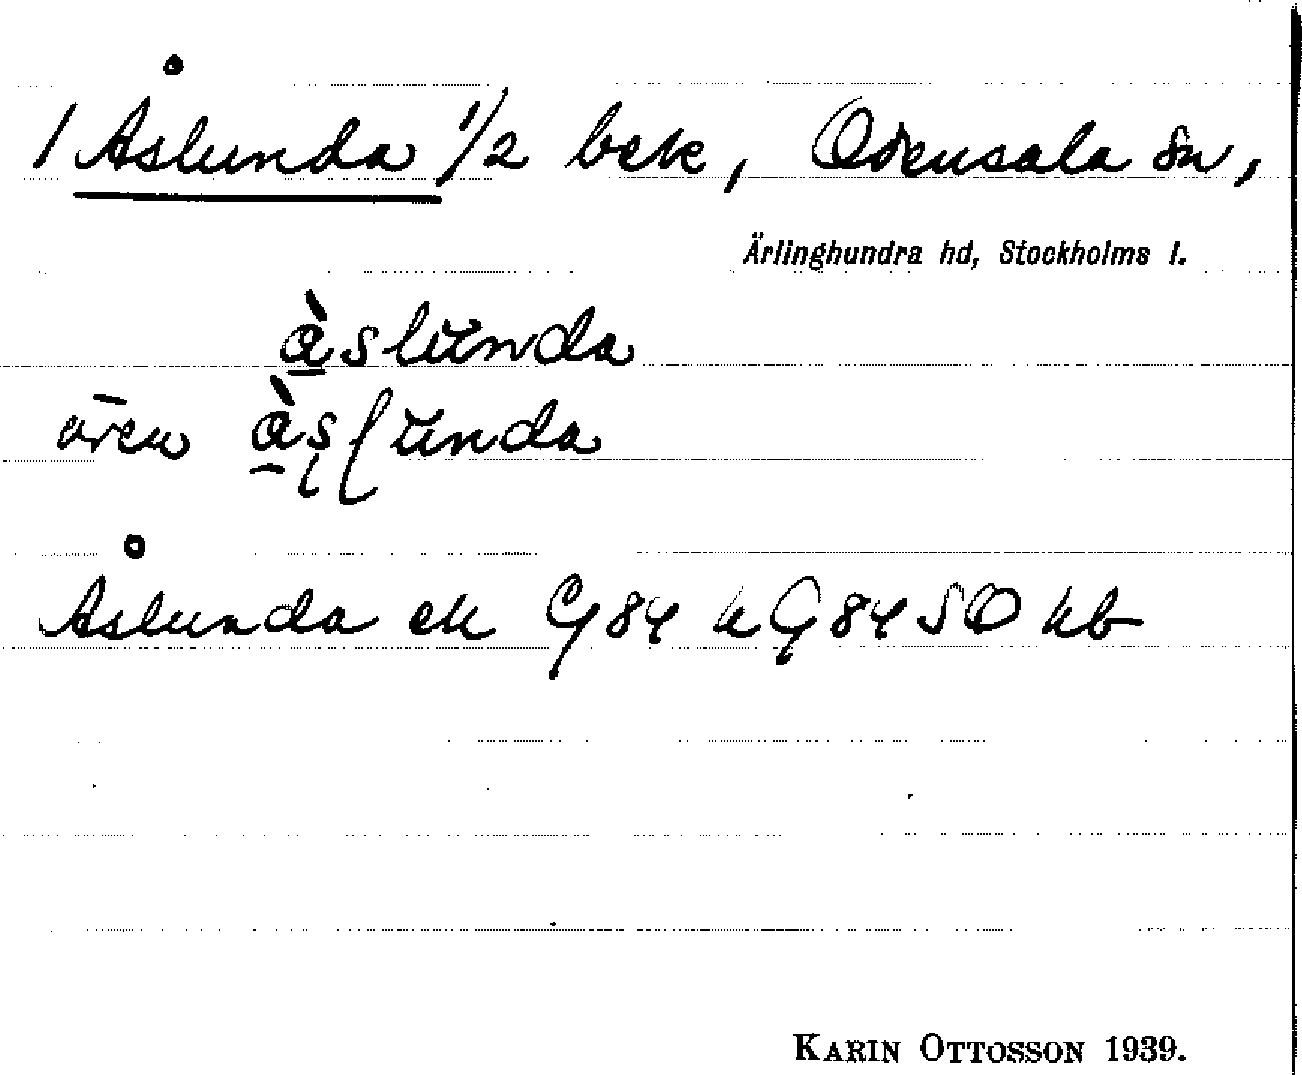 1 Åslunda 1/2 bek, Odensala sn,
Ärlinghundra hd, Stockholms l.
à̱slunda
även à̱sl̨unda
Åslunda ek G 84 h G 84 SO kb
KARIN OTTOSSON 1939.